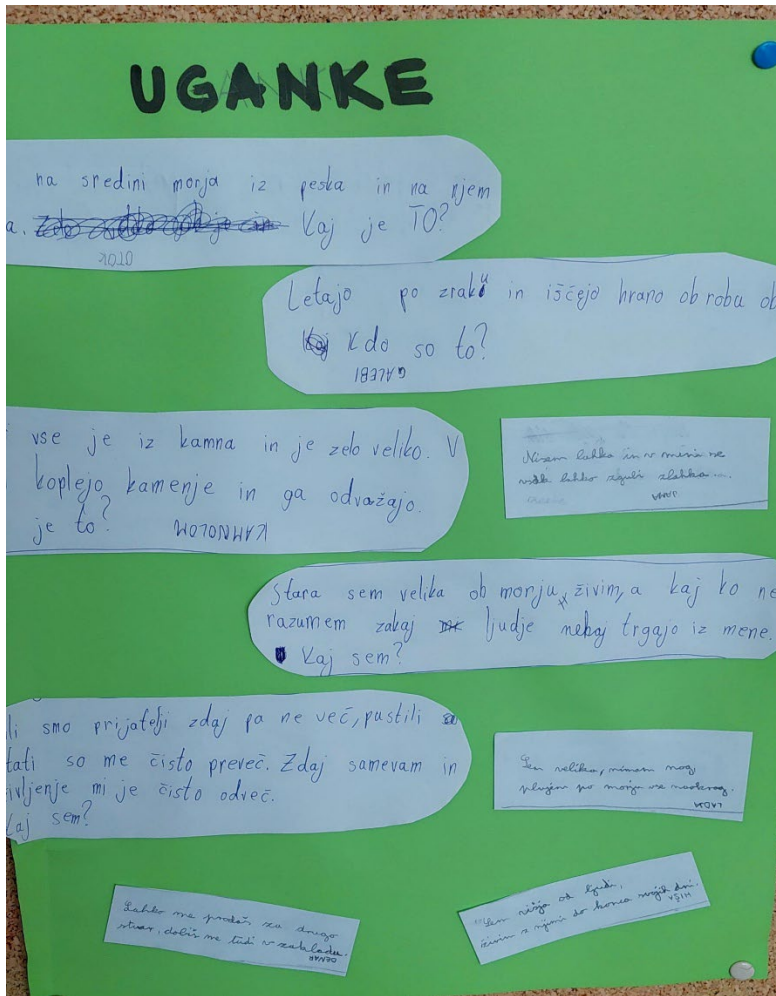 UGANKE
na sredini morja iz peska in na njem
a. Kaj je TO?
OTOK
Letajo po zraku in iščejo hrano ob robu ob
Kdo so to?
GALEBI
vse je iz kamna in je zelo veliko. V
koplejo kamenje in ga odvažajo.
je to? KAMNOLOM
Nisem lahka in v meni se
vsak lahko izgubi zlahka....
JAMA
Stara sem velika ob morju živim, a kaj ko ne
razumem zakaj ljudje nekaj trgajo iz mene.
Kaj sem?
li smo prijatelji zdaj pa ne več, pustili
tati so me čisto preveč. Zdaj samevam in
ivljenje mi je čisto odveč.
Kaj sem?
Sem velika, nimam nog,
plujem po morju vse naokrog.
LADJA
Lahko me prodaš za drugo
stvar, dobiš me tudi v zakladu.
DENAR
Sem višja od ljudi,
živim z njimi do konca svojih dni.
HIŠA